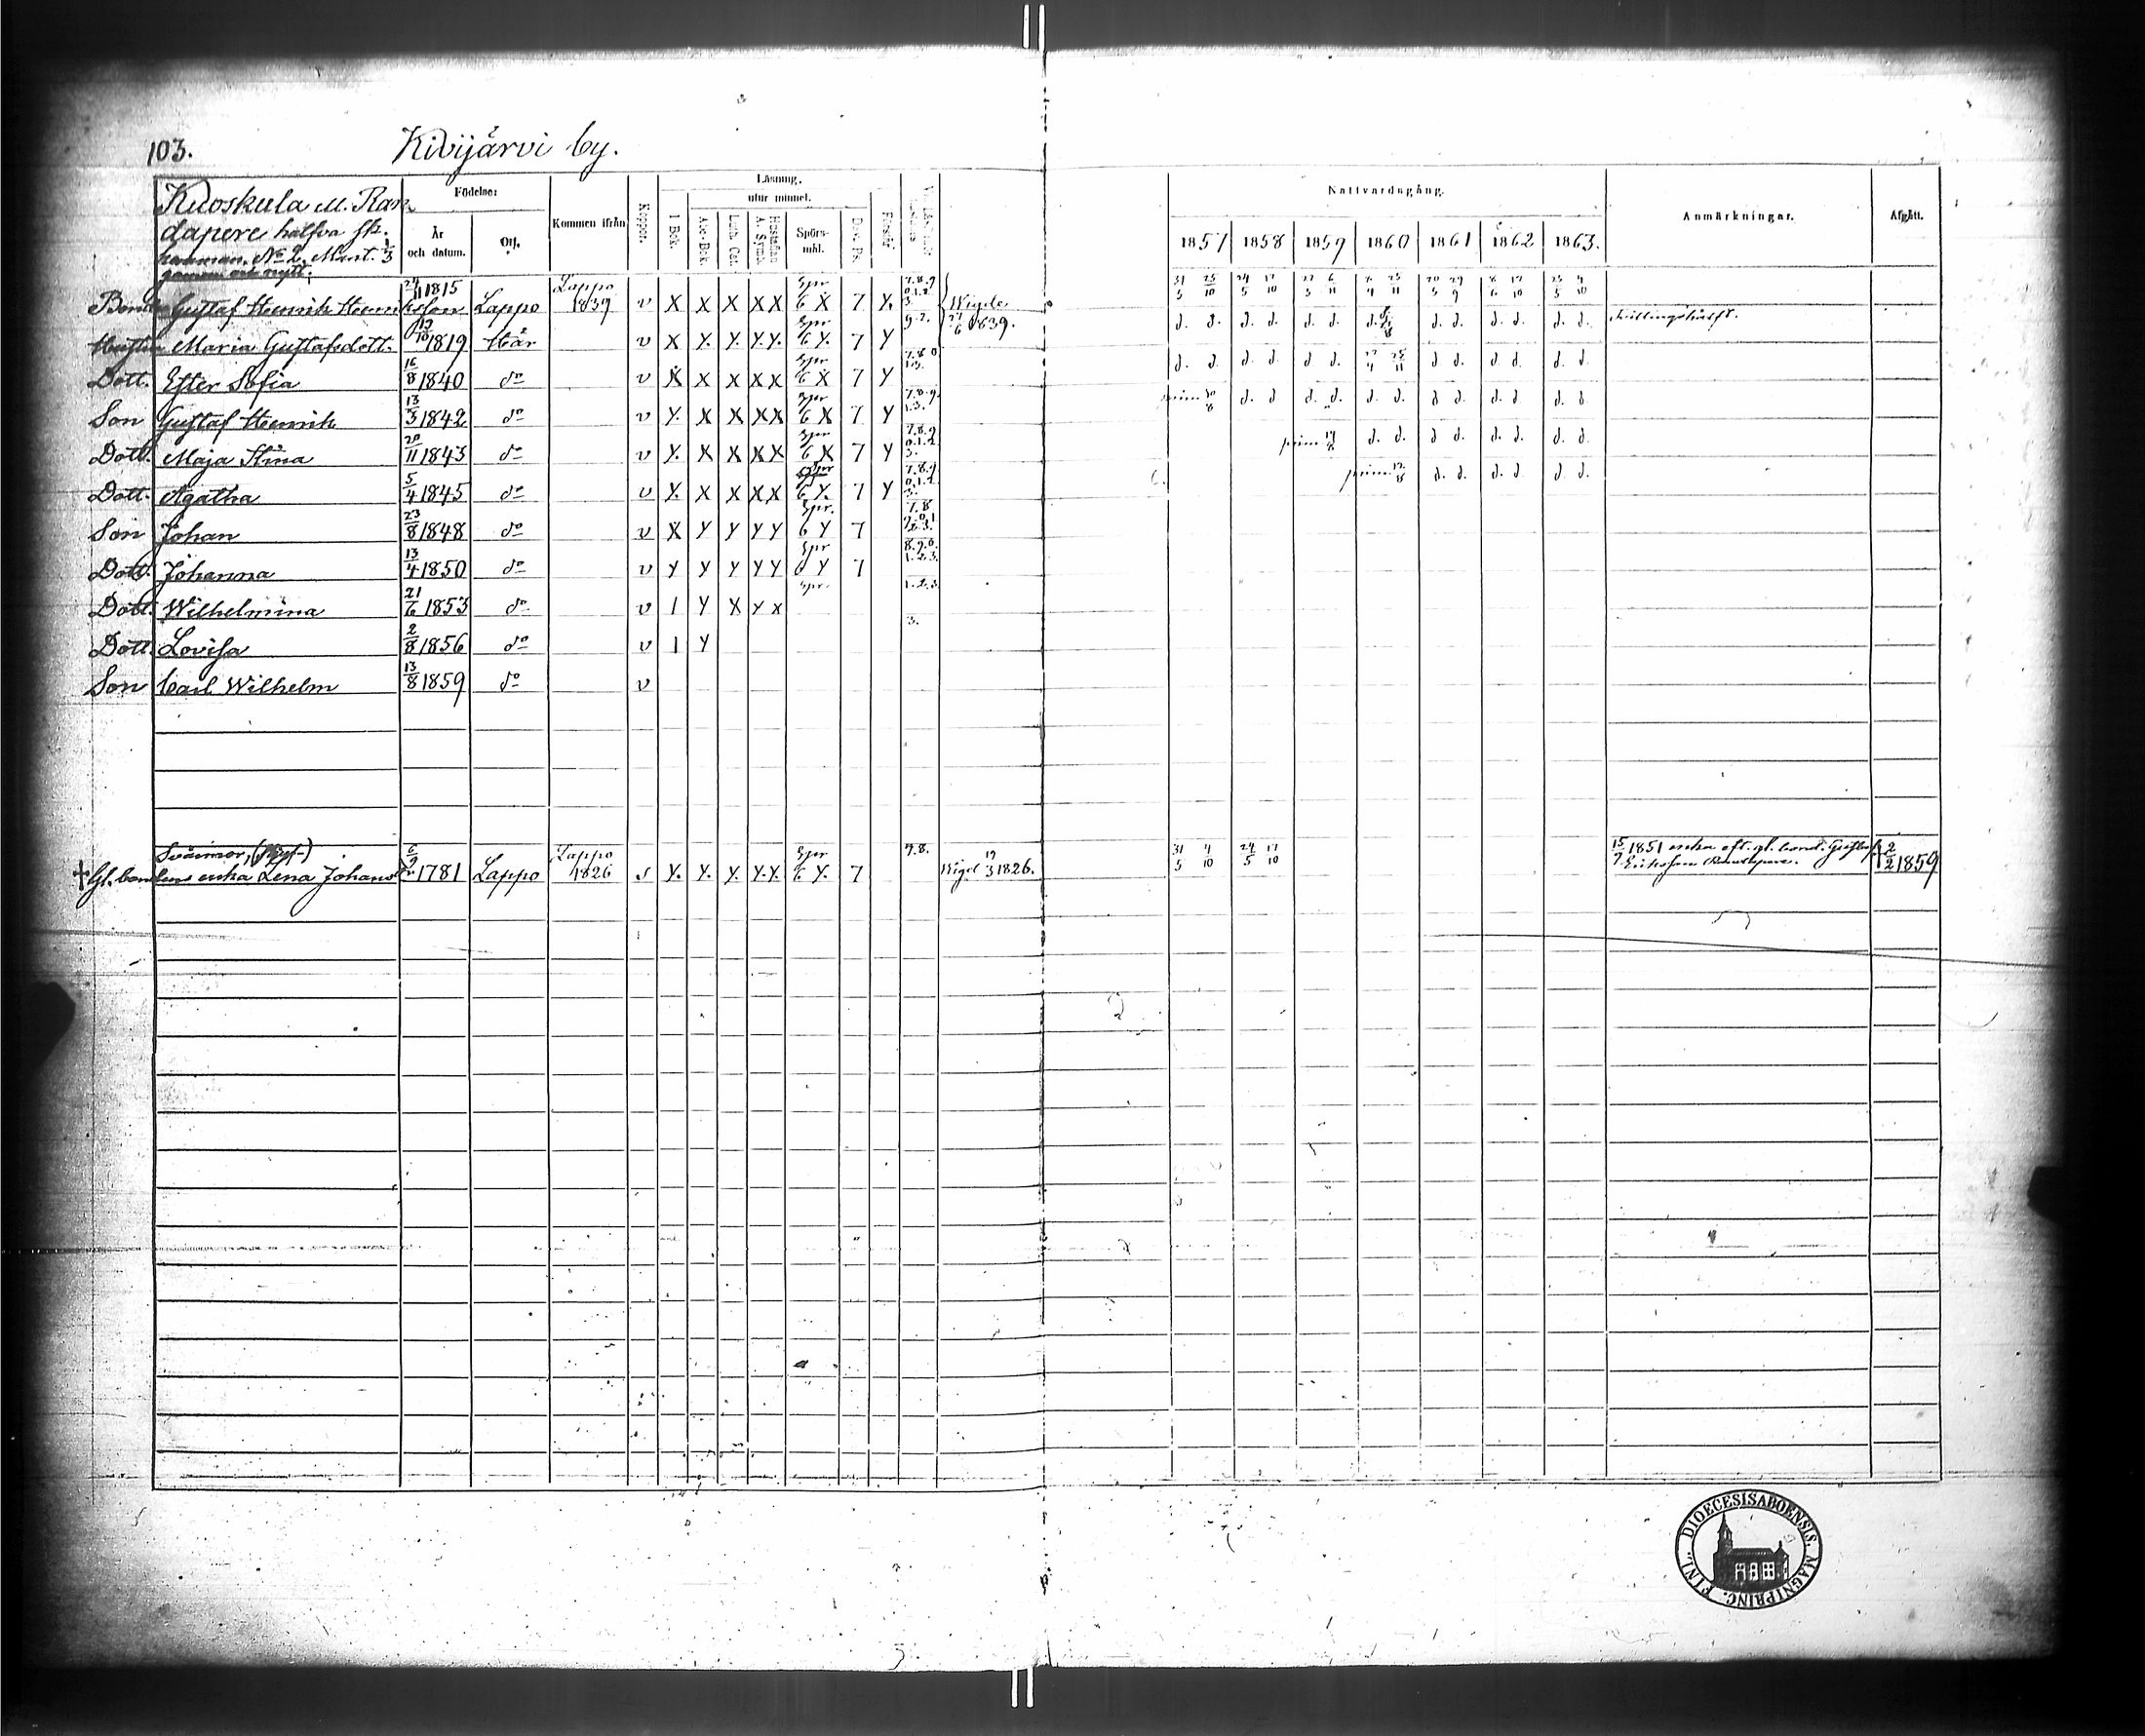 103.
Kivijärvi by.
Kuoskula m. Ran
dapere halfva sk.
hemman. No 2. Mant. 1/3
gammn och nytt.
Födelse:
År och datum.
Ort.
Kommen ifrån
Koppor.
Läsning.
I Bok.
utur minnet.
Abc-Bok.
Luth. Cat.
Hustaflan A. Symb.
Spörs-mål.
Dav. Ps.
Förstår
Nattvardsgång.
1857 1858 1859 1860 1861 1862 1863.
Anmärkningar.
Afgått.
31/5 25/10 24/5 17/10
Bonden Gustaf Henrik Henriksson 24/11 1815 Lappo Lappo 1839 v X X X X X Spr 6 X 7 X. 7.8.9 0.1.2. 3. Wigde 27/6 1839. d. d. d. d. d. d. d. d. d. d. d. d. d. Tvillingshälft.
Hustru Maria Gustafsdott. 19/10 1819 Här v X Y. Y. Y. Y. Spr 6 Y. 7 Y 9.2.
Dott. Ester Sofia 16/8 1840 do v X X X X X Spr 6 X 7 Y 7.8.0 d. d. d. d. d. d. 27/4 25/11 d. d. d. d. d. d
Son Gustaf Henrik 13/3 1842 do v Y. X X X X Spr 6 X 7 Y 7.8.9. 1.3. prim. d. d d. d. d. d. d d. d. d d. d
Dott. Maja Stina 20/11 1843 do v Y. X X X X Spr 6 X 7 Y 7.8.9 0.1.2. 3. prim. d. d. d d. d. d. d. d.
Dott. Agatha 5/4 1845 do v Y. X X X X Spr 6 Y. 7 Y 7.8.9. 0.1.2. 3. prim. d. d. d. d d d.
Son Johan 23/8 1848 do v X Y Y Y Y Spr. 6 Y 7 7.8 9.0.1 2.3.
Dott. Johanna 13/4 1850 do v Y Y Y Y Y Spr 6 Y 7 8.9.0. 1.2.3.
Dott. Wilhelmina 21/6 1853 do v 1 Y X Y X Spr. 1.2.3
Dott. Lovisa 2/8 1856 do v 1 Y 3.
Son Carl Wilhelm 13/8 1859 do v
Svärmor,
† Gl. bondens enka Lena Johansd. 6/9 1781 Lappo Lappo 1826 s Y. Y. Y. Y. Y. Spr 6 Y. 7 7.8. Wigd 19/3 1826. 31/5 4/10 24/5 17/10 15/9 1851 enka eft. gl. bond. Gustaf Eriksson Randapere. † 2/2 1859
DIOECESIS ABOENSIS. MAGNI PRINC. FINL.